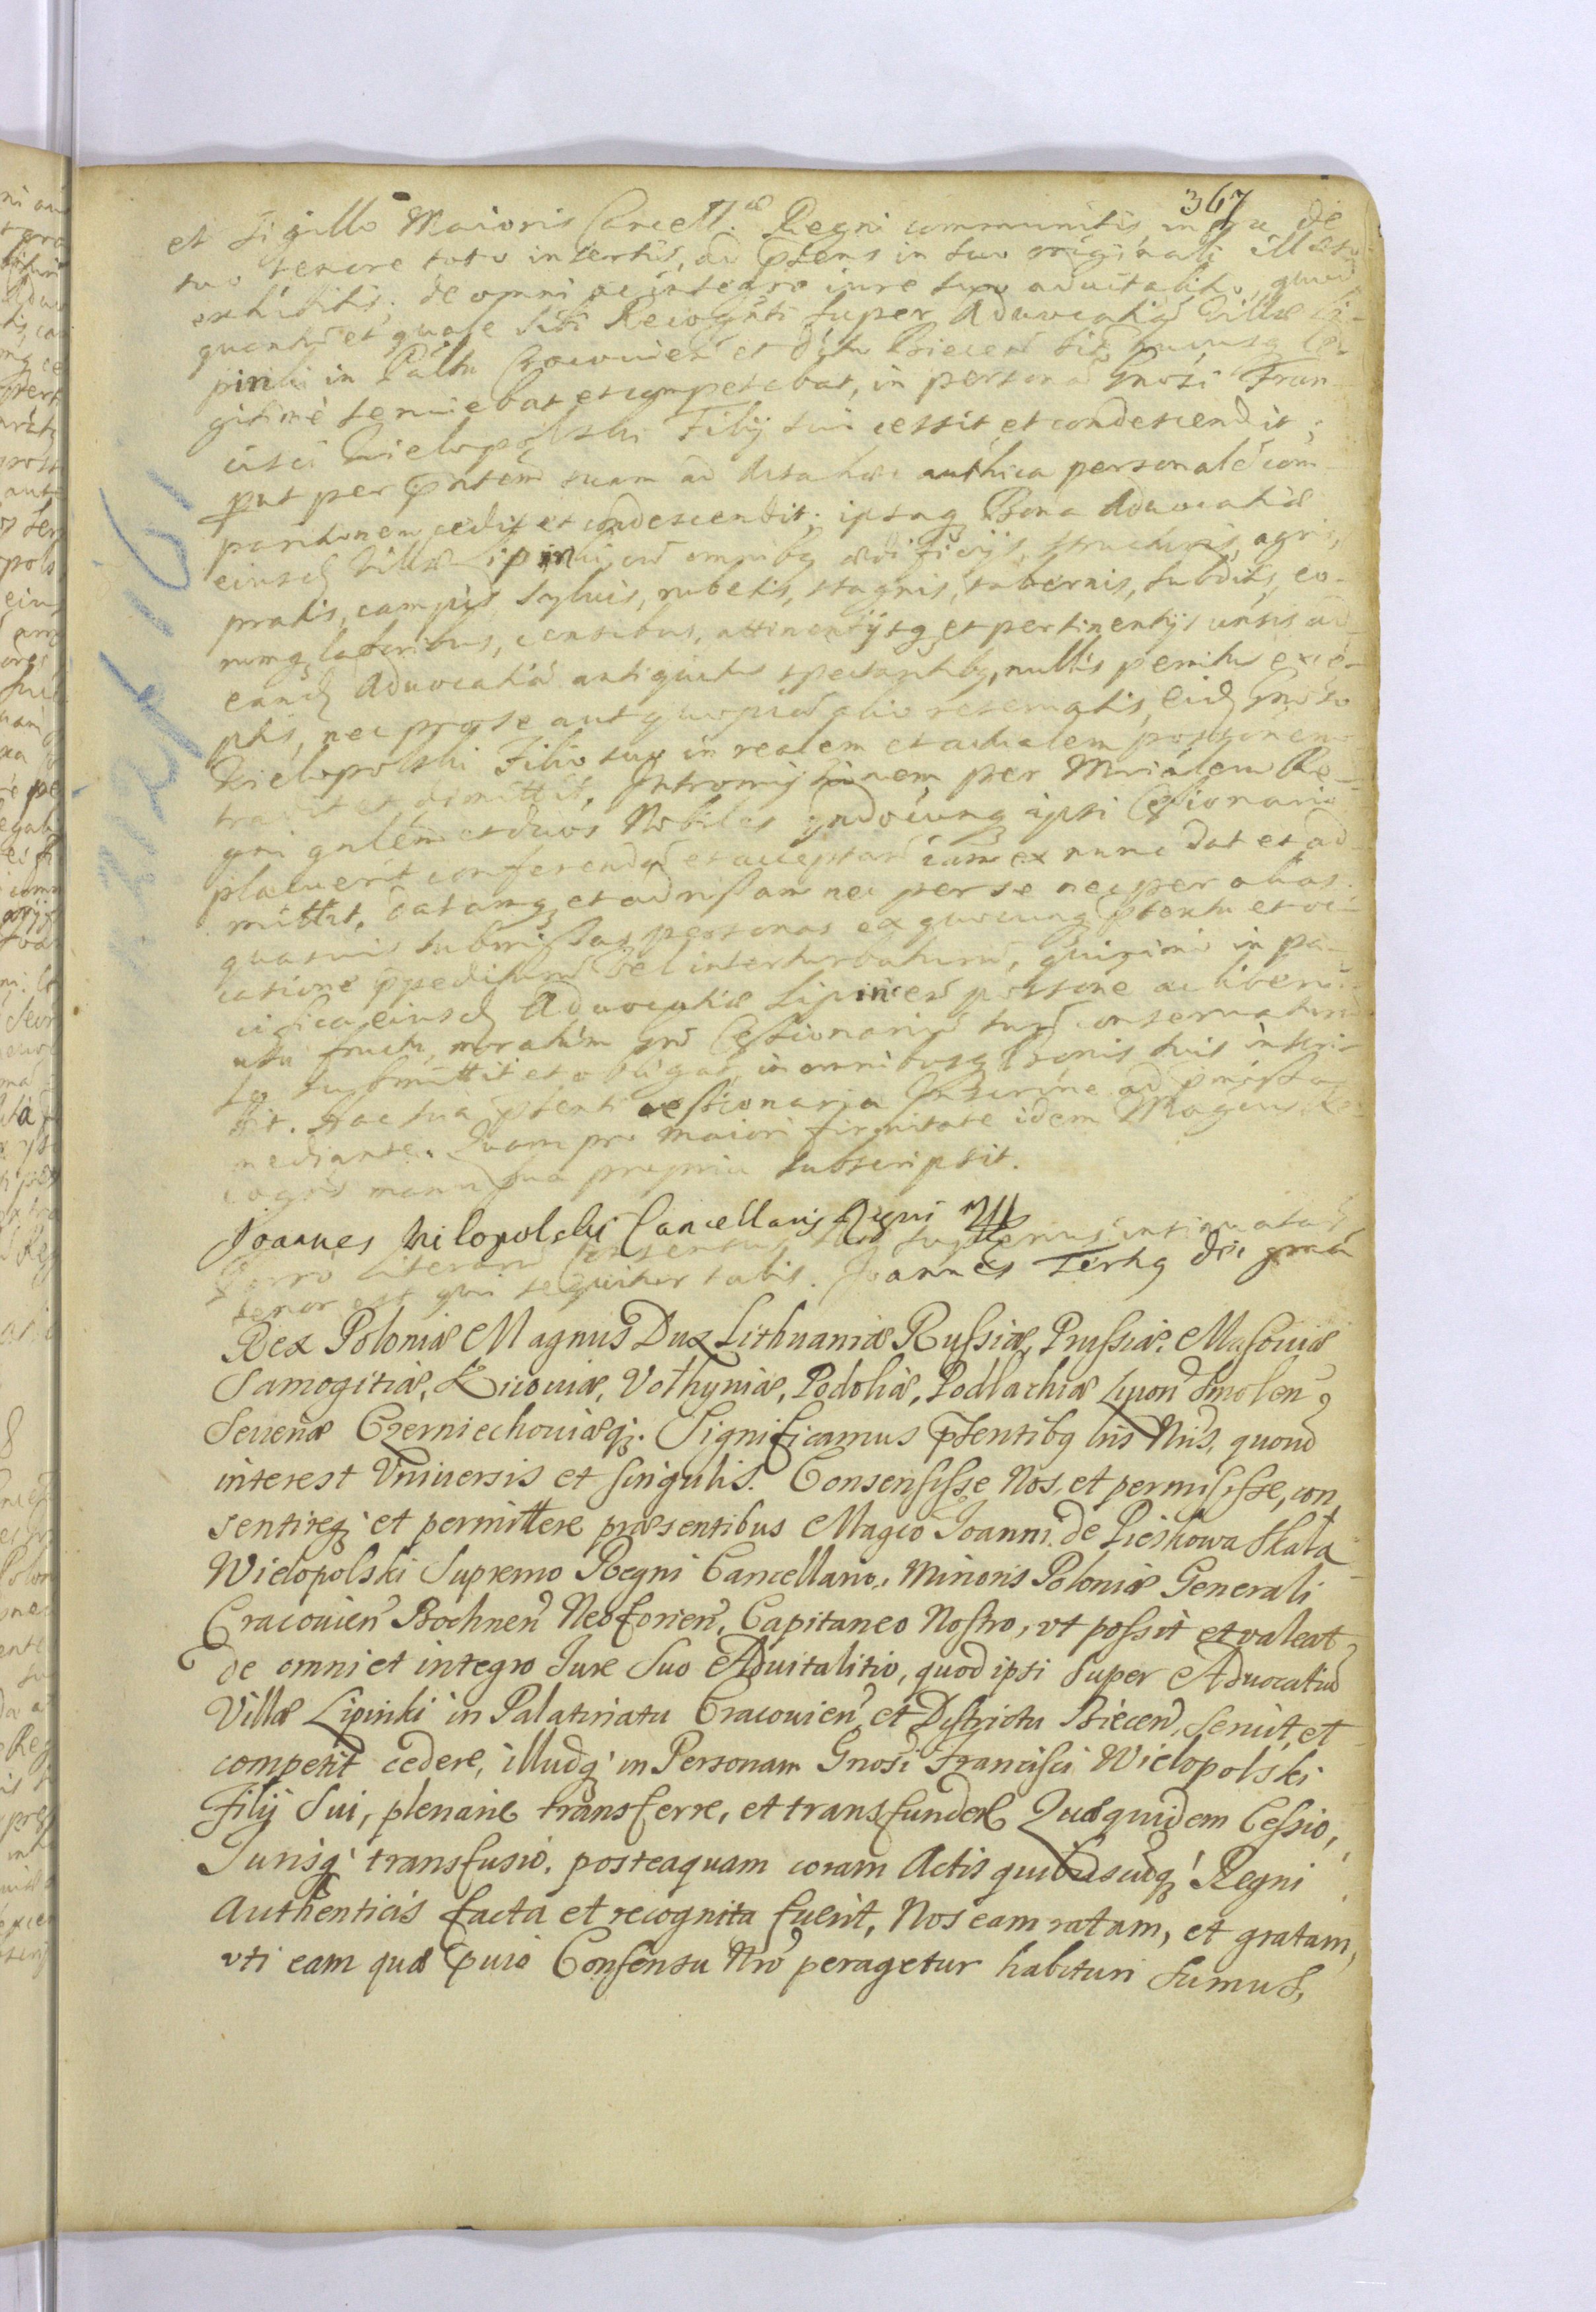 367
et Sigillo Maioris Cancell.æ Regni communitis infra de
suo tenore toto insertis, ad p̃tens in suo originali illæso
exhibitis, de omni ac integro iure suo aduitalitio, quod
quantũ et quale sibi Recogñti super Aduocatiã Villæ Li-
pinki in Palñtu Cracouień et dictu Biecen̄ sitã hucusq Le-
gitimè seruiebat et competebat, in personã Gnosi Fran-
cisci Wielopolski Filij sui cessit et condescendit;
put per p̃ntem suam ad Acta hæc authica personalẽ com-
paritionem cedit et condescendit; ipsaq Bona Aduocatiæ
eiusd Villæ Lipinki cũ omnibq ædificijs, structuris, agris,
pratis, campis, Syluis, rubetis, stagnis, tabernis, subditis, eo-
rumq laboribus, censibus, attinentijsq et pertinentijs uñsis ad
eand Aduocatiã antiquitus spectantibq, nullis penitus exce-
ptis, nec pro se aut quopiã alio reseruatis, eid Gnoso
Wielopolski Filio suo in realem et actualem possonem
tradit et dimittit, Intromissionem per Mriálem Re-
gni gnlẽm et duos Nobiles qndocunq ipsi Cessionario
placuerit conferendã et acceptañ iam ex nunc dat et ad-
mittit, datamq et admissam nec per se nec per alias
quasuis submissas personas ex quocunq p̃textu et oc-
casione p̃peditur̃ vel interturbatur̃, quinimo in pa-
cifica eiusd Aduocatiæ Lipincen̄ possone ac libero
usu fructu, moratim gñd Cessionariũ suũ conseruatur̃
se submittit et obligat, in omnibusq Bonis suis inscri-
bit. Hac sua p̃senti cessionaria Inscriñe ad p̃missa
mediante. Quam pro maiori firmitate idem Magcus Re-
cogñs manu sua propria subscripsit.
Joannes Wilopolski Cancellariq Regni Mp
Porro literarũ Consensus Ssũ superius insinuatarũ
tenor est qui sequitur talis. Joannes Tertiq Dei gratia
Rex Poloniæ Magnus Dux Lithuaniæ Russiæ, Prussiæ, Masouiæ
Samogitiæ, Kiiouiæ, Volhyniæ, Podoliæ, Podlachiæ Liuon̄ Smolen̄,
Seueriæ Czerniechouiæq. Significamus p̃sentibq Lris Nris, quorũ
interest Vniuersis et singulis. Consensisse Nos, et permisisse, con
sentireq et permittere præsentibus Magco Joanni de Pieskowa Skała
Wielopolski Supremo Regni Cancellario, Minoris Poloniæ Generali
Cracouień Bochnen̄ Neoforien̄, Capitaneo Nostro, vt possit et valeat
de omni et integro Iure suo Aduitalitio, quod ipsi super Aduocatiã
Villæ Lipinki in Palatinatu Cracouień et Districtu Biecen̄, seruit, et
competit cedere, illudq in Personam Gnosi Francisci Wielopolski
Filij sui, plenarie transferre, et transfundere Quæquidem Cessio,
Iurisq transfusio, posteaquam coram Actis quibuscunq Regni
Authenticis facta et recognita fuerit, Nos eam ratam, et gratam,
vti eam quæ p̃uio Consensu Nro peragetur habituri sumus,